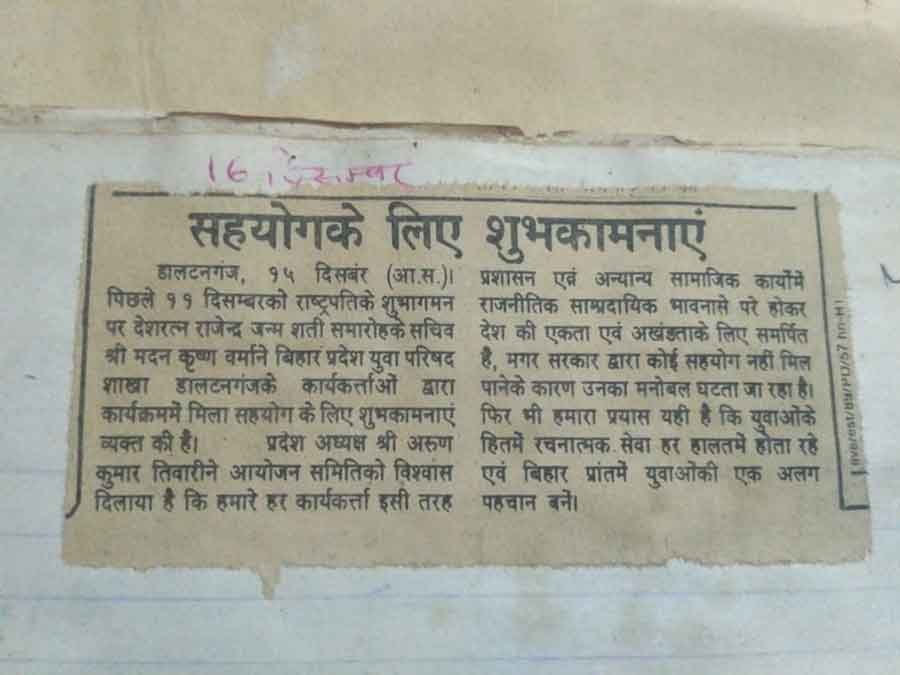 16 दिसम्बर
सहयोगके लिए शुभकामनाएं
डालटनगंज, १५ दिसबंर (आ.स.)।
पिछले ११ दिसम्बरको राष्ट्रपतिके शुभागमन
पर देशरत्न राजेन्द्र जन्म शती समारोहके सचिव
श्री मदन कृष्ण वर्माने बिहार प्रदेश युवा परिषद
शाखा डालटनगंजके कार्यकर्त्ताओं द्वारा
कार्यक्रममें मिला सहयोग के लिए शुभकामनाएं
व्यक्त की है। प्रदेश अध्यक्ष श्री अरुण
कुमार तिवारीने आयोजन समितिको विश्वास
दिलाया है कि हमारे हर कार्यकर्त्ता इसी तरह
प्रशासन एवं अन्यान्य सामाजिक कार्योमें
राजनीतिक साम्प्रदायिक भावनासे परे होकर
देश की एकता एवं अखंडताके लिए समर्पित
है, मगर सरकार द्वारा कोई सहयोग नहीं मिल
पानेके कारण उनका मनोबल घटता जा रहा है।
फिर भी हमारा प्रयास यही है कि युवाओंके
हितमें रचनात्मक सेवा हर हालतमें होता रहे
एवं बिहार प्रांतमें युवाओंकी एक अलग
पहचान बनें।